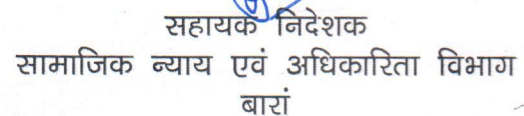 सहायक निदेशक
सामाजिक न्याय एवं अधिकारिता विभाग
बारां